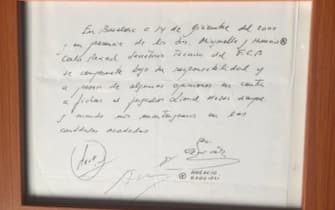 En Barcelona a 14 de diciembre del 2000
y en presencia de los Srs. Minguella y Horacio ⊗
Carles Rexach Secretario Técnico del F.C.B
se compromete bajo su responsabilidad y
a pesar de algunas opiniones en contra
a fichar al jugador Lionel Messi siempre
y cuando nos mantengamos en las
cantidades acordadas
⊗ HORACIO
GAGGIOLI